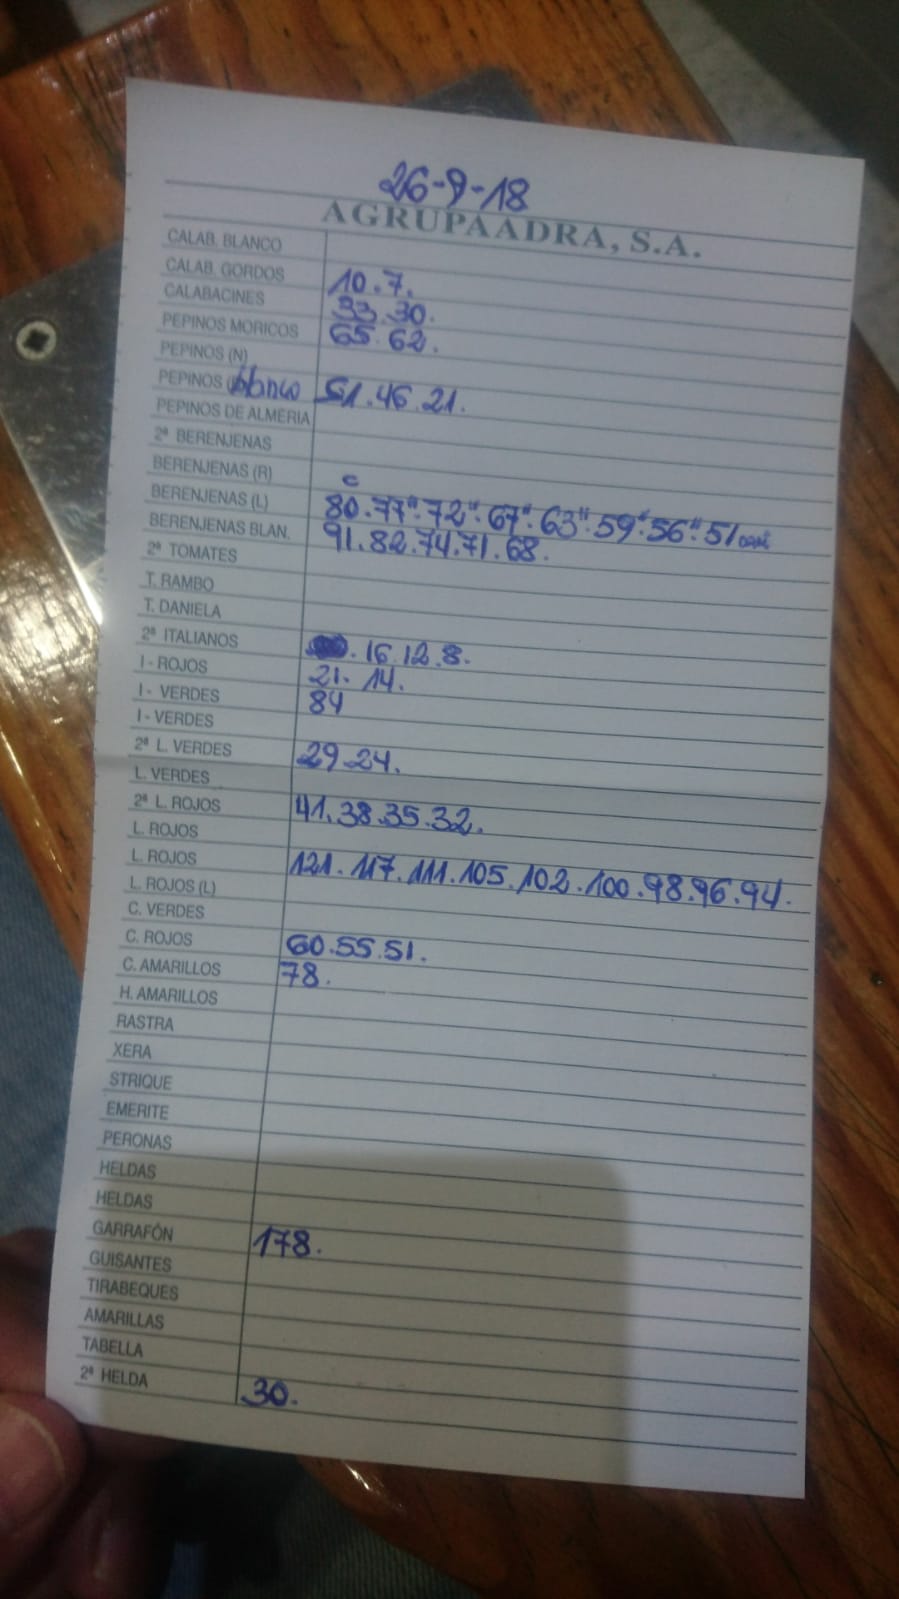 26-9-18
AGRUPAADRA, S.A.
CALAB. BLANCO
CALAB. GORDOS 10.7.
CALABACINES 33.30.
PEPINOS MORICOS 65.62.
PEPINOS (N)
PEPINOS blanco 51.46.21.
PEPINOS DE ALMERIA
2ª BERENJENAS
BERENJENAS (R) c
BERENJENAS (L) 80.77".72".67".63".59".56".51
BERENJENAS BLAN. 91.82.74.71.68.
2ª TOMATES
T. RAMBO
T. DANIELA
2ª ITALIANOS .16.12.8.
I - ROJOS 21. 14.
I - VERDES 84
I - VERDES
2ª L. VERDES 29.24.
L. VERDES
2ª L. ROJOS 41.38.35.32.
L. ROJOS
L. ROJOS 121.117.111.105.102.100.98.96.94.
L. ROJOS (L)
C. VERDES
C. ROJOS 60.55.51.
C. AMARILLOS 78.
H. AMARILLOS
RASTRA
XERA
STRIQUE
EMERITE
PERONAS
HELDAS
HELDAS
GARRAFÓN 178.
GUISANTES
TIRABEQUES
AMARILLAS
TABELLA
2ª HELDA 30.